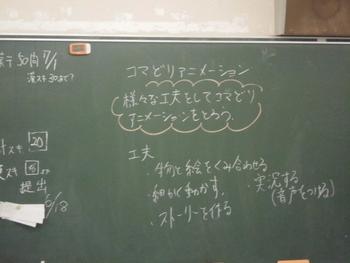 コマどりアニメーション
様々な工夫をしてコマどり
アニメーションをとろう。
工夫
・物と絵をくみ合わせる
・細かく動かす。
・ストーリーを作る
・実況する
(音声をつける)
7/1
漢スキ30まで?
スキ 20
スキ
提出
6/18